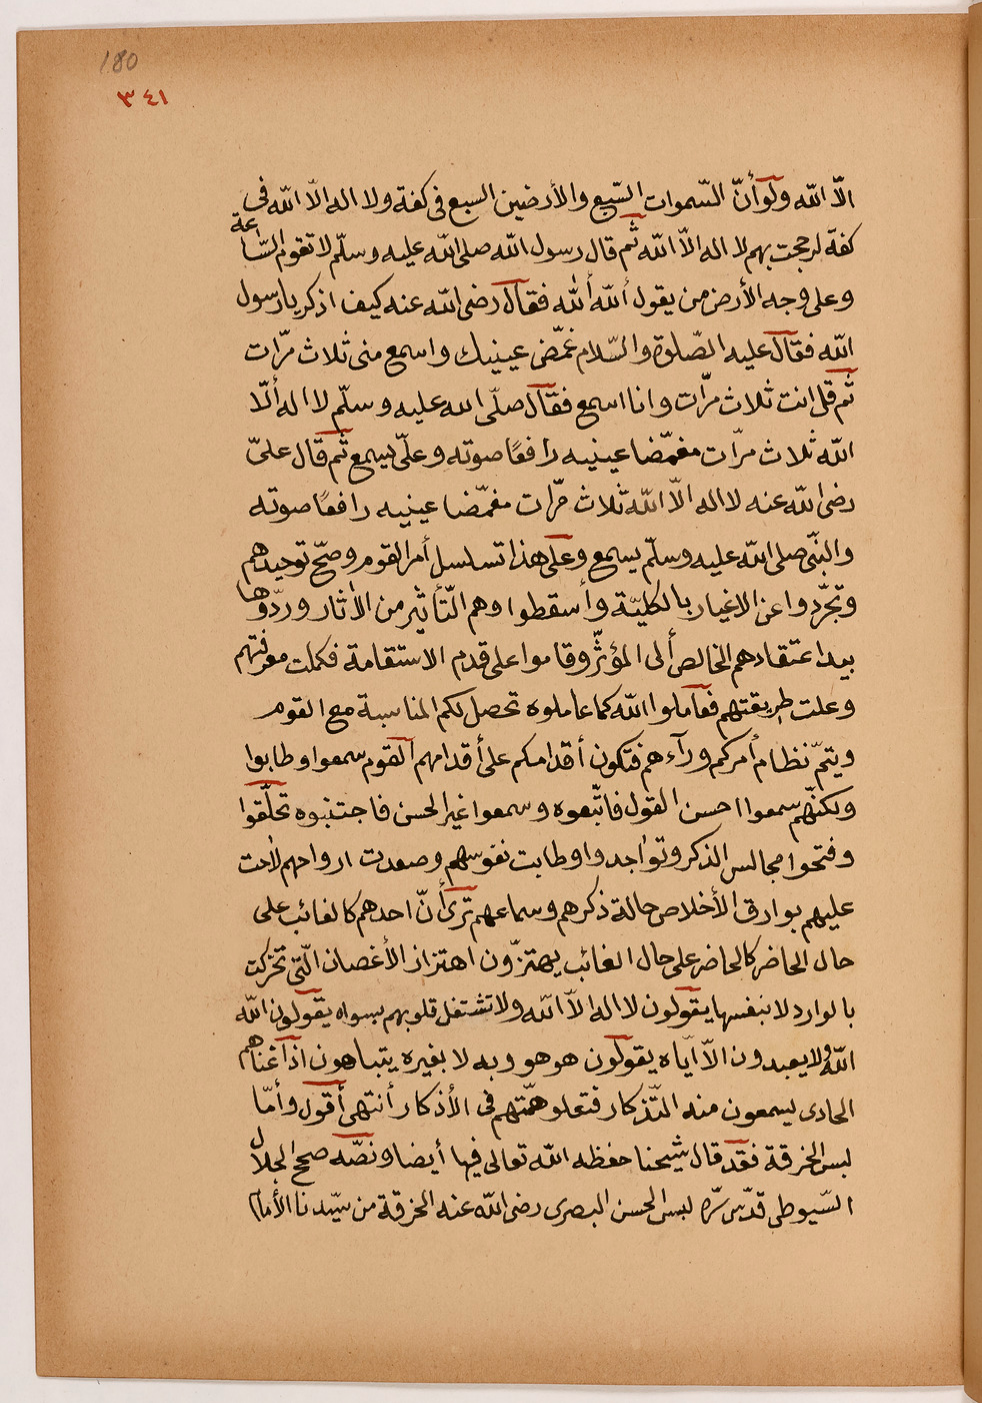 180
٣٤١
الّا اللّه ولو أنّ السّموات السّبع والأرضين السبع فى كفة ولا اله الّا اللّه فى
كفة لرجحت بهم لا اله الّا اللّه ثم قال رسول اللّه صلى اللّه عليه وسلّم لا تقوم السّاعة
وعلى وجه الأرض من يقول أللّه أللّه فقال رضى اللّه عنه كيف اذكر يا رسول
اللّه فقال عليه الصّلوة والسّلام غمّض عينيك واسمع منى ثلاث مرّات
ثم قل انت ثلاث مرّات وانا اسمع فقال صلّى الله عليه وسلّم لا اله ألّا
اللّه ثلاث مرّات مغمّضا عينيه رافعًا صوته وعلّى يسمع ثم قال علىّ
رضى اللّه عنه لا اله الّا اللّه ثلاث مرّات مغمّضا عينيه رافعًا صوته
والنبّى صلى اللّه عليه وسلّم يسمع وعلى هذا تسلسل أمر القوم وصحّ توحيدهم
وتجرّدوا عن الاغيار بالكليّة وأسقطوا وهم التّأثير من الأثار وردّوها
بيد اعتقادهم الخالص ألى المؤثّر وقاموا على قدم الاستقامة فكملت معرفتهم
وعلت طريقتهم فعاملوا اللّه كما عاملوه تحصل لكم المناسبة مع القوم
ويتمّ نظام أمركم ورآءهم فتكون أقدامكم على أقدامهم القوم سمعوا وطابوا
ولكنّهم سمعوا احسن القول فاتّبعوه وسمعوا غير الحسن فاجتنبوه تحلّقوا
وفتحوا مجالس الذكر وتواجدوا وطابت نفوسهم وصعدت ارواحهم لاحت
عليهم بوارق الأخلاص حالة ذكرهم وسماعهم ترى أنّ احدهم كالغائب على
حال الحاضر كالحاضر على حال الغائب يهتزّون اهتزاز الأغصان الّتى تحركت
بالوارد لا بنفسها يقولون لا اله الّا اللّه ولا تشتغل قلوبهم بسواه يقولون اللّه
اللّه ولا يعبدون الّا ايّاه يقولون هو هو وبه لا بغيره يتباهون اذا غنّاهم
الحادى يسمعون منه التّذكار فتعلو همّتهم فى الأذكار أنتهى أقول وأمّا
لبس الخرقة فقد قال شيخنا حفظه اللّه تعالى فيها أيضا ونصّه صحح الجلال
السّيوطى قدّس سرّه لبس الحسن البصرى رضى اللّه عنه الخرقة من سيّدنا الأمام